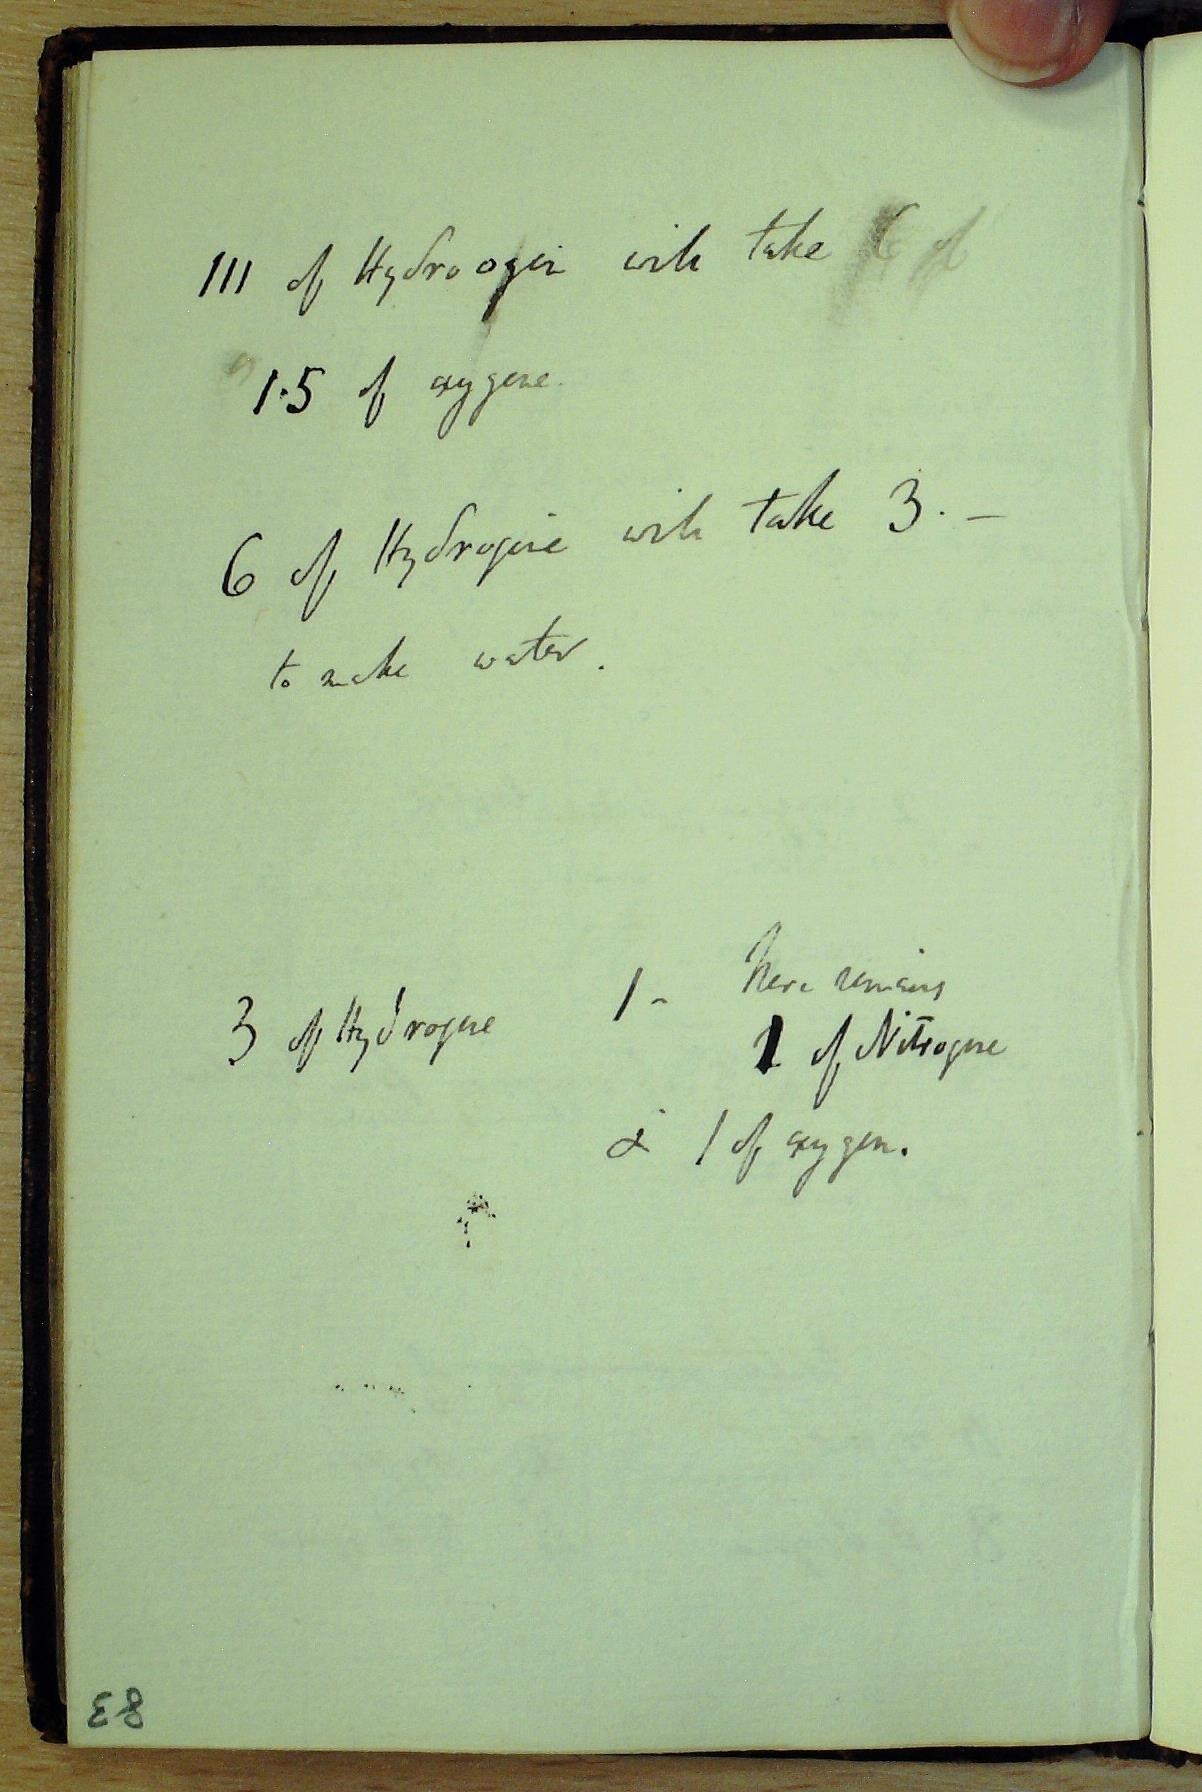 111 of Hydrogen will take 6 of
1.5 of oxygene.
6 of Hydrogene will take 3. –
to make water.
3 of Hydrogene 1 – here remains
1 of Nitrogene
& 1 of oxygen.
83